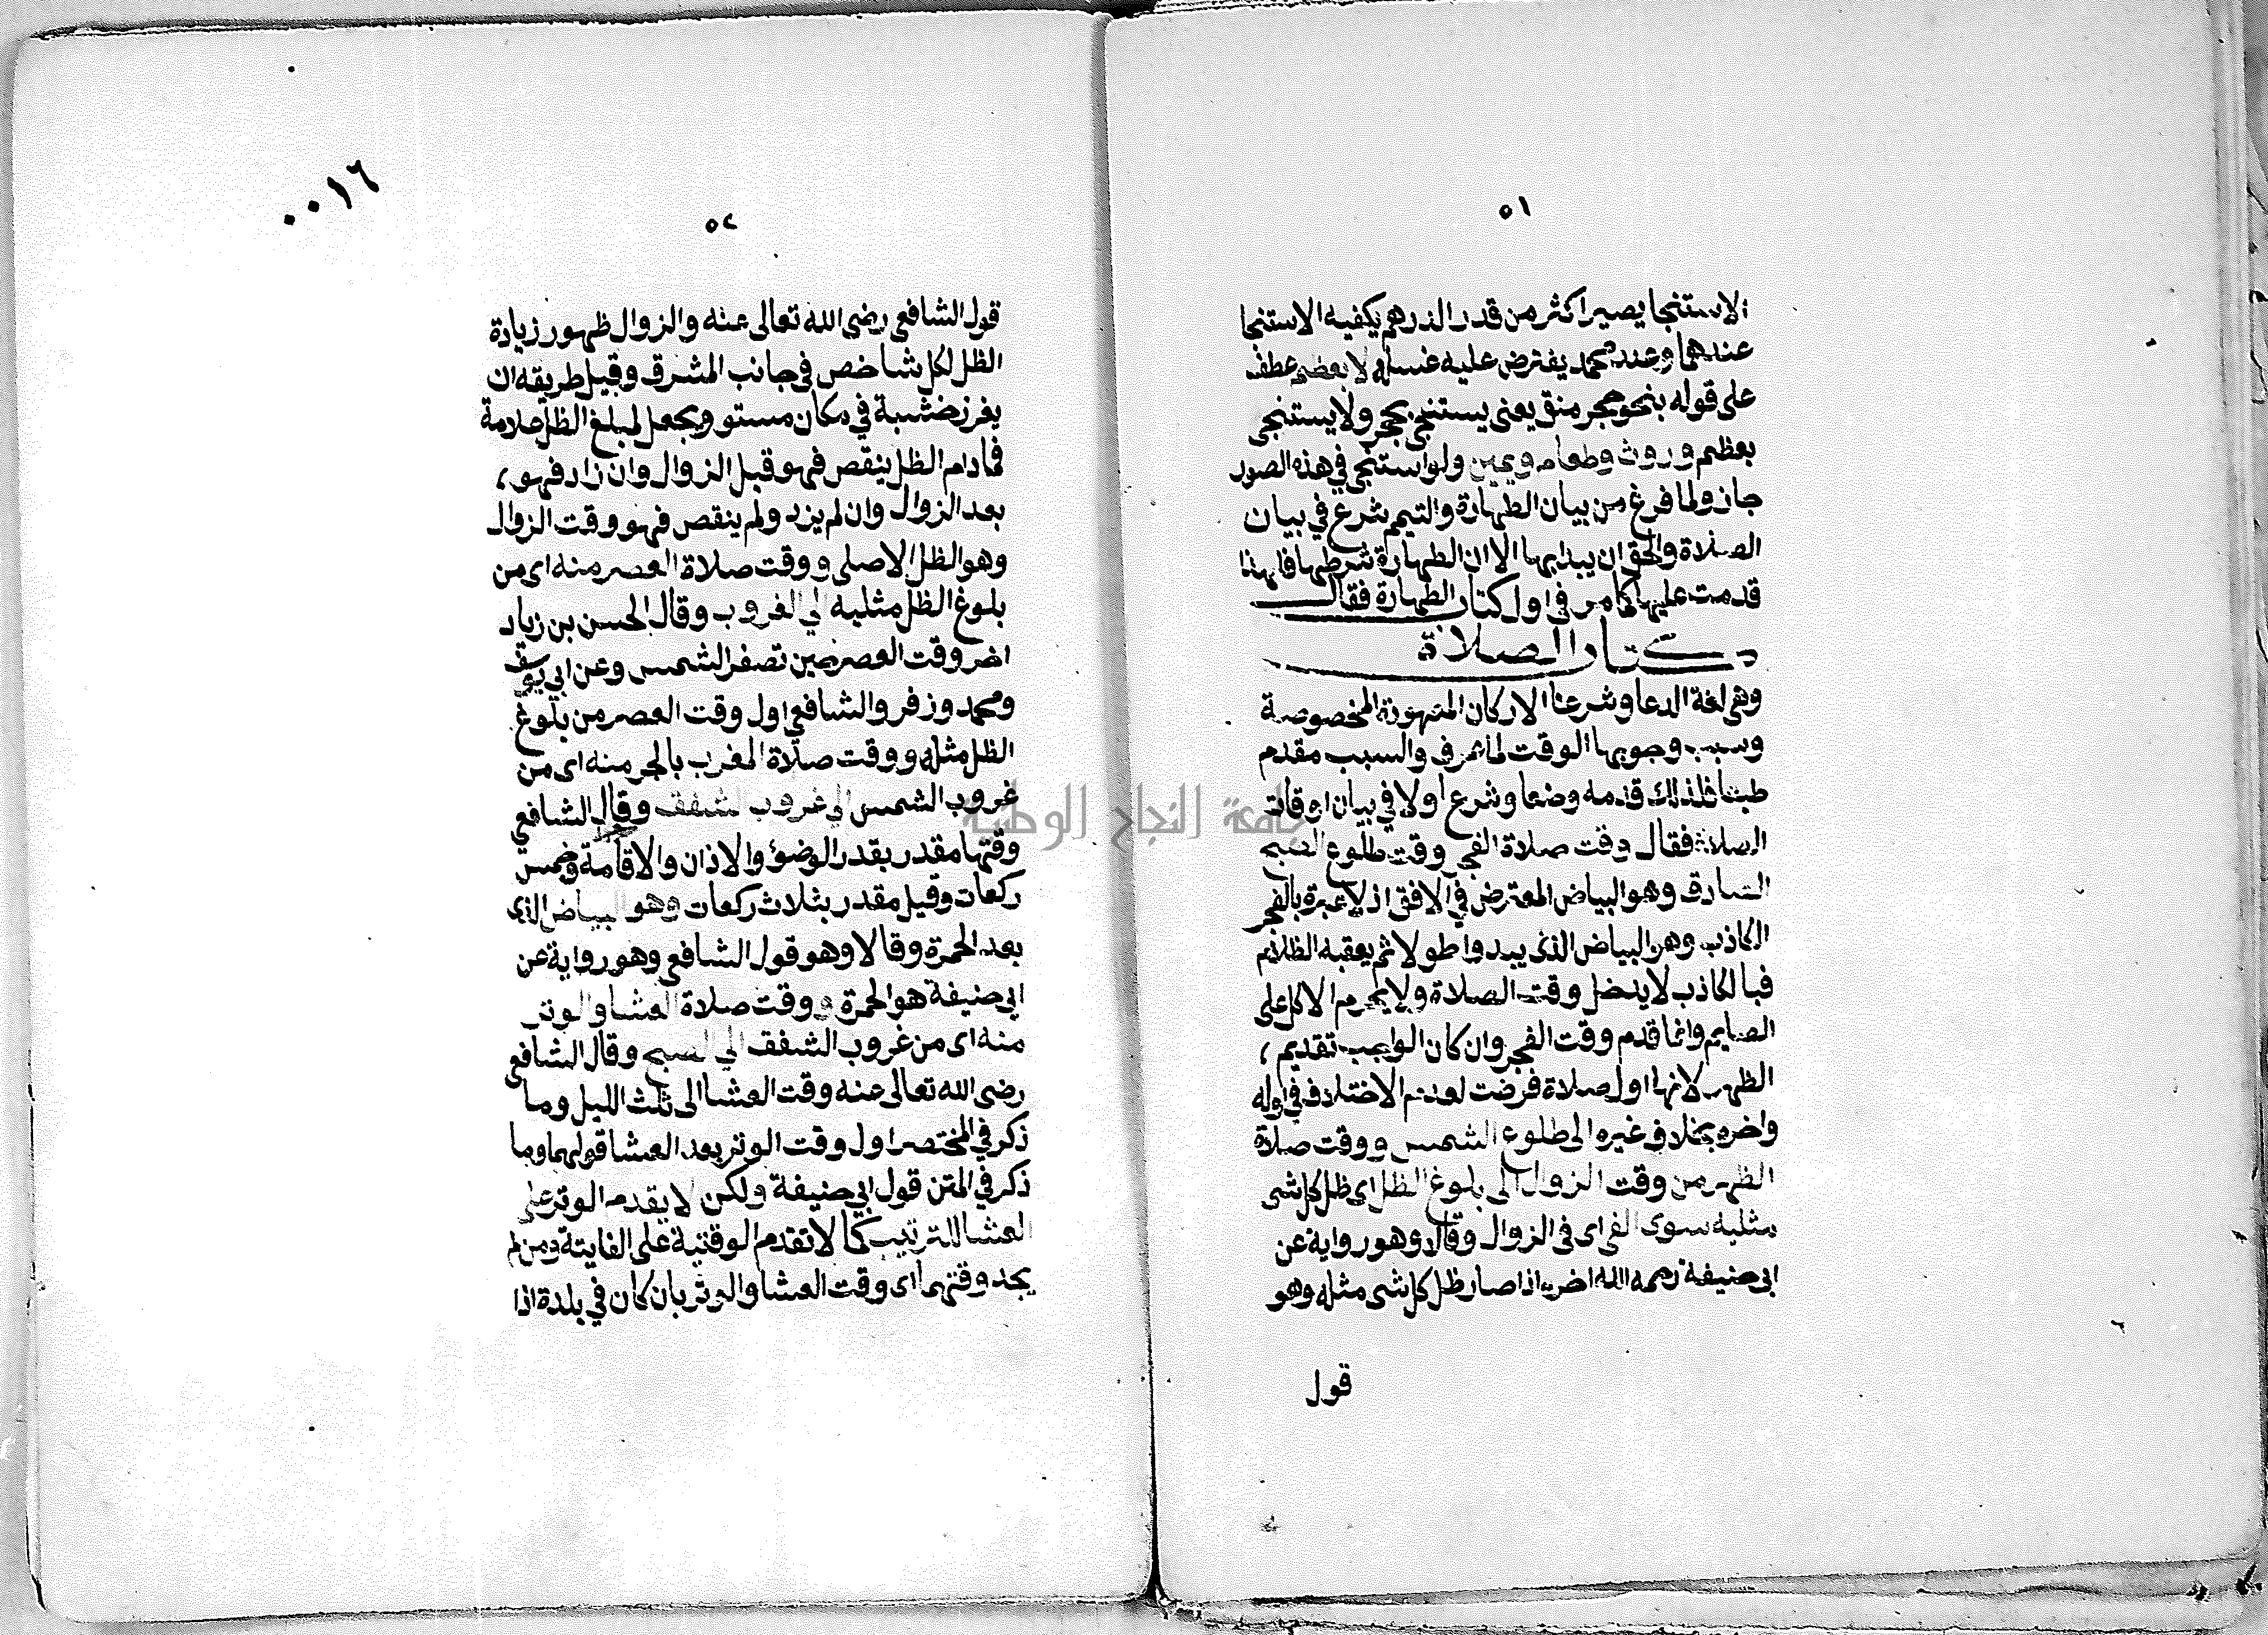 ٥١
الاستنجا يصير اكثر من قدر الدرهم يكفيه الاستنجا
عندهما وعند محمد يفترض عليه غسله لا بعظم عطف
على قوله بنحو حجر منق يعنى يستنجى بحجر ولا يستنجى
بعظم وروث وطعام ويمين ولو استنجى في هذه الصور
جاز ولما فرغ من بيان الطهارة والتيمم شرع في بيان
الصلاة والحق ان يبدا بها الا ان الطهارة شرطها فلهذا
قدمت عليها كما مر فى اول كتاب الطهارة فقال
كتاب الصلاة
وهى لغة الدعا وشرعا الاركان المشهورة المخصوصة
وسبب وجوبها الوقت لما عرف والسبب مقدم
طبعا فلذلك قدمه وضعا وشرع اولا في بيان اوقات
الصلاة فقال وقت صلاة الفجر وقت طلوع الصبح
الصادق وهو البياض المعترض في الافق اذ لا عبرة بالفجر
الكاذب وهو البياض الذى يبدوا طولا ثم يعقبه الظلام
فبالكاذب لا يدخل وقت الصلاة ولا يحرم الاكل على
الصايم وانما قدم وقت الفجر وان كان الواجب تقديم
الظهر لانها اول صلاة فرضت لعدم الاختلاف في اوله
واخره بخلاف غيره الى طلوع الشمس ووقت صلاة
الظهر من وقت الزوال الى بلوغ الظل اى ظل كل شى
مثليه سوى الفى اى فى الزوال وقالا وهو رواية عن
ابى حنيفة رحمه الله اخره اذا صار ظل كل شى مثله وهو
قول
٠٠١٦
٥٢
قول الشافعى رضى الله تعالى عنه والزوال ظهور زيادة
الظل لكل شاخص في جانب المشرق وقيل طريقه ان
يغرز خشبة في مكان مستو ويجعل لمبلغ الظل علامة
فما دام الظل ينقص فهو قبل الزوال وان زاد فهو
بعد الزوال وان لم يزد ولم ينقص فهو وقت الزوال
وهو الظل الاصلى ووقت صلاة العصر منه اى من
بلوغ الظل مثليه الي الغروب وقال الحسن بن زياد
اخر وقت العصر حين تصفر الشمس وعن ابي يوسف
ومحمد وزفر والشافعى اول وقت العصر من بلوغ
الظل مثله ووقت صلاة المغرب بالجر منه اى من
غروب الشمس الي غروب الشفق وقال الشافعي
وقتها مقدر بقدر الوضؤ والاذان والاقامة وخمس
ركعات وقيل مقدر بثلاث ركعات وهو البياض الذى
بعد الحمرة وقالا وهو قول الشافعى وهو رواية عن
ابي حنيفة هو الحمرة ووقت صلاة العشا والوتر
منه اى من غروب الشفق الي الصبح وقال الشافعى
رضى الله تعالى عنه وقت العشا الى ثلث الليل وما
ذكر في المختصر اول وقت الوتر بعد العشا قولهما وما
ذكر في المتن قول ابي حنيفة ولكن لا يقدم الوتر على
العشا للترتيب كما لا تقدم الوقتية على الفايتة ومن لم
يجد وقتهما اى وقت العشا والوتر بان كان في بلدة اذا
جامعة النجاح الوطنية